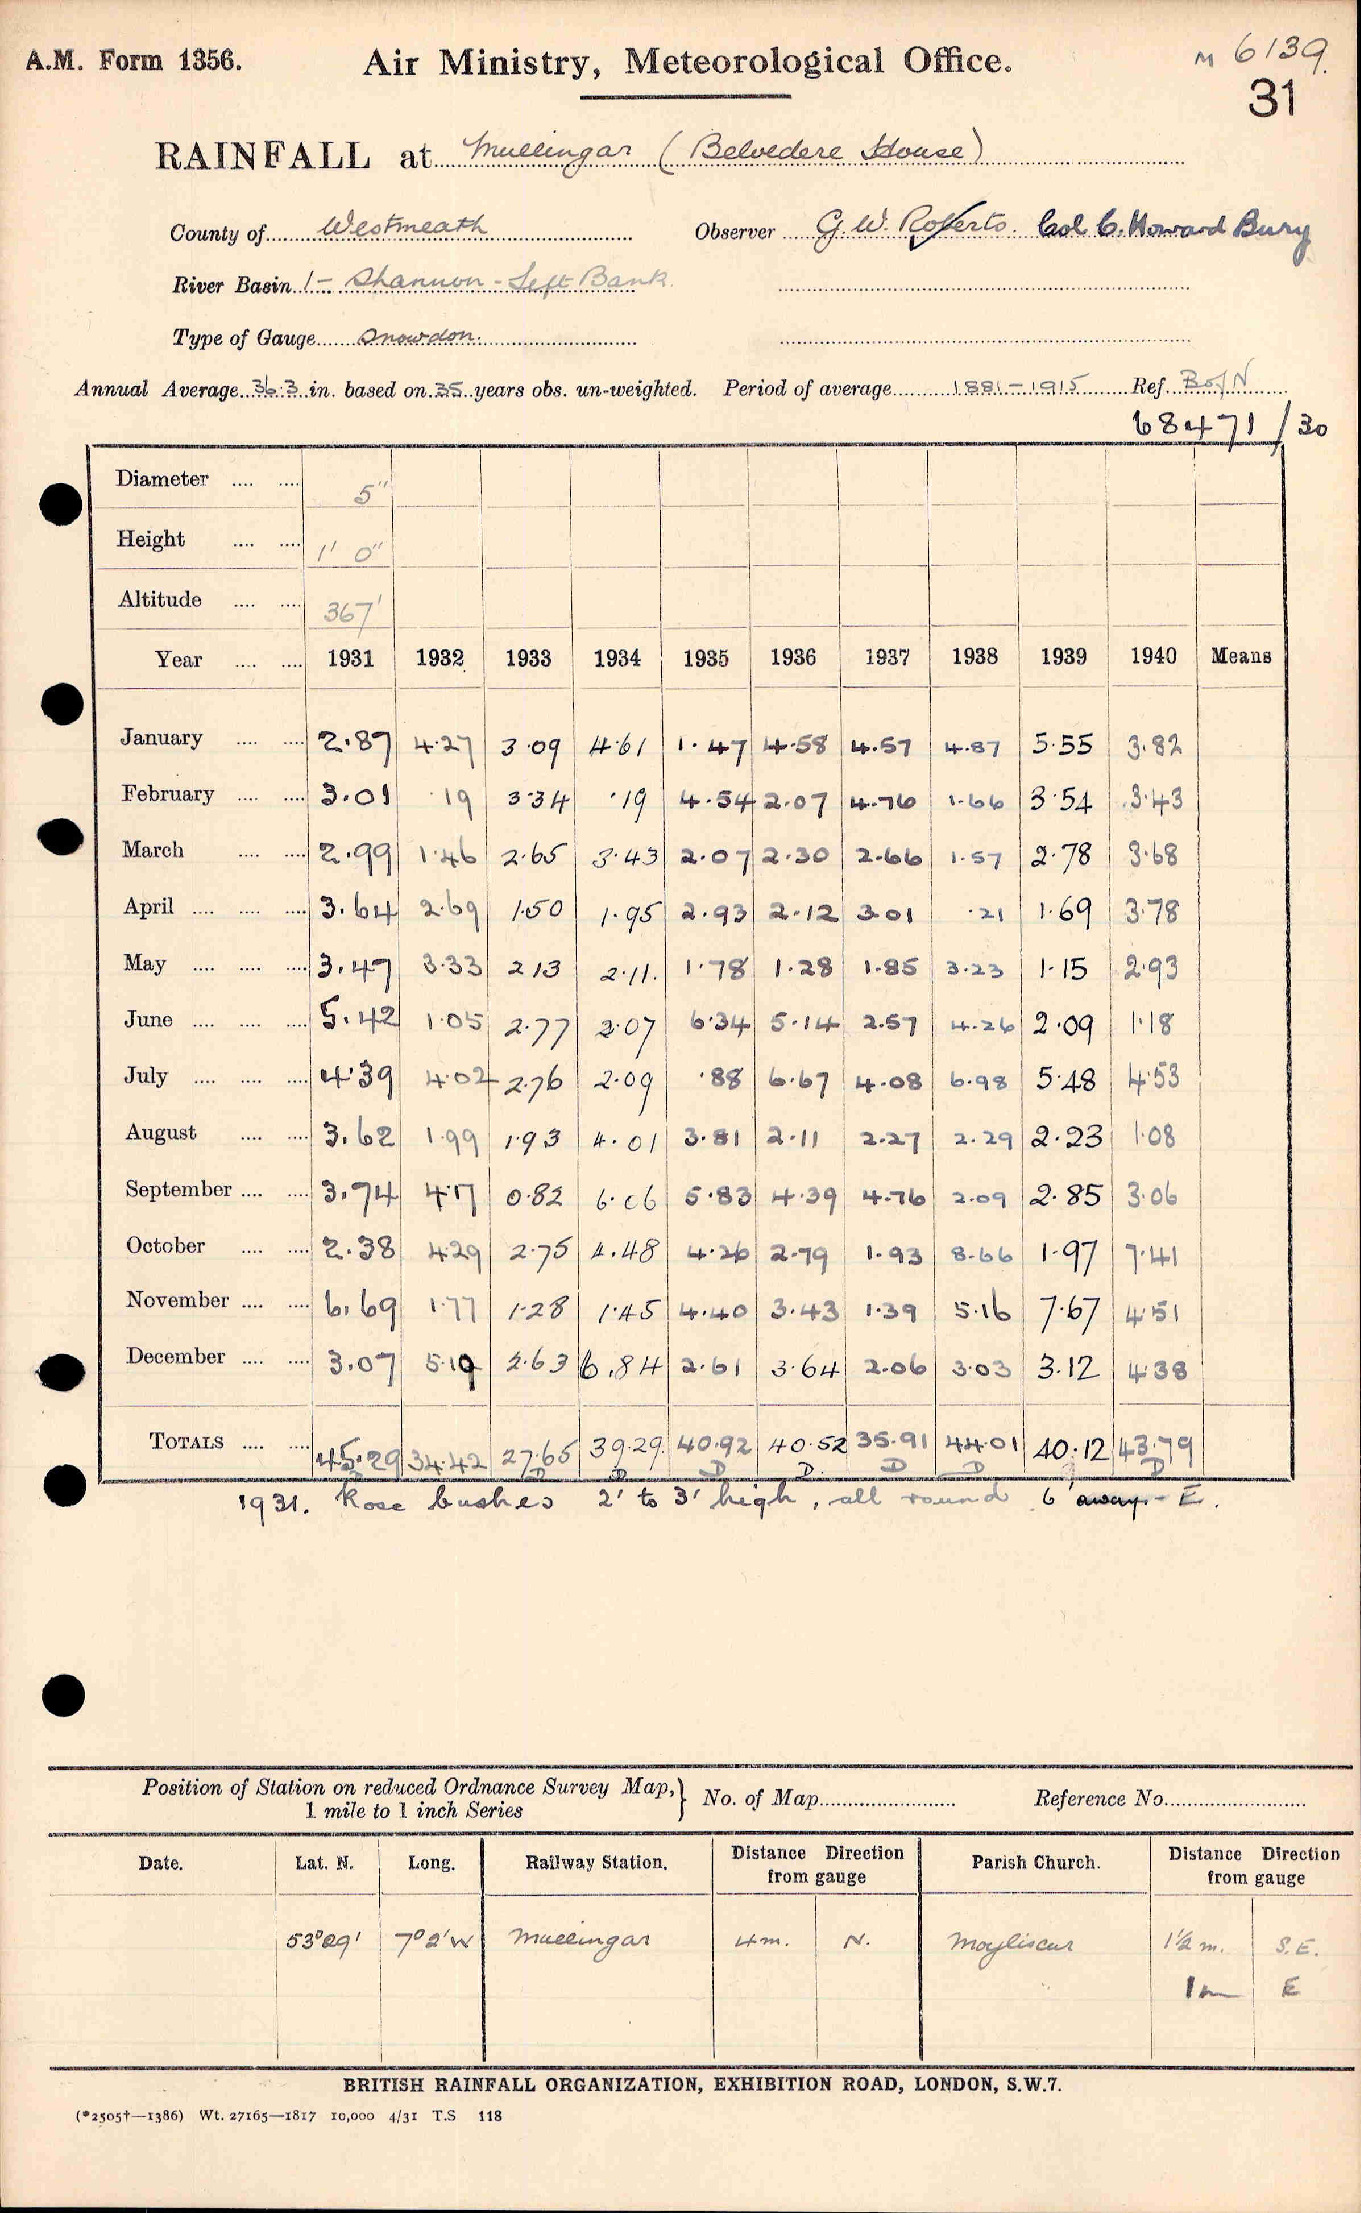 A.M. Form 1356.
Air Ministry, Meteorological Office.
M 6139.
31
RAINFALL at Mullingar (Belvedere House)
County of Westmeath Observer G. W. Roberts. Col C. Howard Bury
River Basin 1- Shannon - Left Bank.
Type of Gauge Snowdon.
Annual Average 36.3 in. based on 35 years obs. un-weighted. Period of average 1881-1915 Ref. B of N
68471/30
Diameter .... .... 5"
Height .... .... 1' 0"
Altitude .... .... 367'
Year .... .... 1931 1932 1933 1934 1935 1936 1937 1938 1939 1940 Means
January .... .... 2.87 4.27 3.09 4.61 1.47 4.58 4.57 4.87 5.55 3.82
February .... .... 3.01 .19 3.34 .19 4.54 2.07 4.76 1.66 3.54 3.43
March .... .... 2.99 1.46 2.65 3.43 2.07 2.30 2.66 1.57 2.78 3.68
April .... .... .... 3.64 2.69 1.50 1.95 2.93 2.12 3.01 .21 1.69 3.78
May .... .... .... 3.47 3.33 2.13 2.11. 1.78 1.28 1.85 3.23 1.15 2.93
June .... .... .... 5.42 1.05 2.77 2.07 6.34 5.14 2.57 4.26 2.09 1.18
July .... .... .... 4.39 4.02 2.76 2.09 .88 6.67 4.08 6.98 5.48 4.53
August .... .... 3.62 1.99 1.93 4.01 3.81 2.11 2.27 2.29 2.23 1.08
September .... .... 3.74 4.17 0.82 6.06 5.83 4.39 4.76 2.09 2.85 3.06
October .... .... 2.38 4.29 2.75 4.48 4.26 2.79 1.93 8.66 1.97 7.41
November .... .... 6.69 1.77 1.28 1.45 4.40 3.43 1.39 5.16 7.67 4.51
December .... .... 3.07 5.19 2.63 6.84 2.61 3.64 2.06 3.03 3.12 4.38
TOTALS .... .... 45.29 34.42 27.65 39.29. 40.92 40.52 35.91 44.01 40.12 43.79
D D D D D D D D
1931. Rose bushes 2' to 3' high, all round 6' away - E.
Position of Station on reduced Ordnance Survey Map,} No. of Map Reference No.
1 mile to 1 inch Series
Date. Lat. N. Long. Railway Station. Distance Direction from gauge Parish Church. Distance Direction from gauge
53°29' 7°2'W Mullingar 4m. N. Moyliscar 1½ m. S.E.
1m E
BRITISH RAINFALL ORGANIZATION, EXHIBITION ROAD, LONDON, S.W.7.
(*2505†—1386) Wt. 27165—1817 10,000 4/31 T.S 118